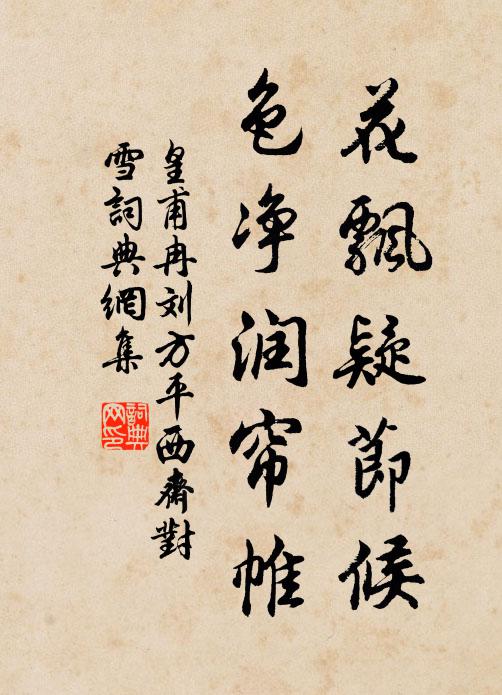 花飘疑節候
色净润帘帷
皇甫冉刘方平西齋對
雪詞典網集
詞典
网印